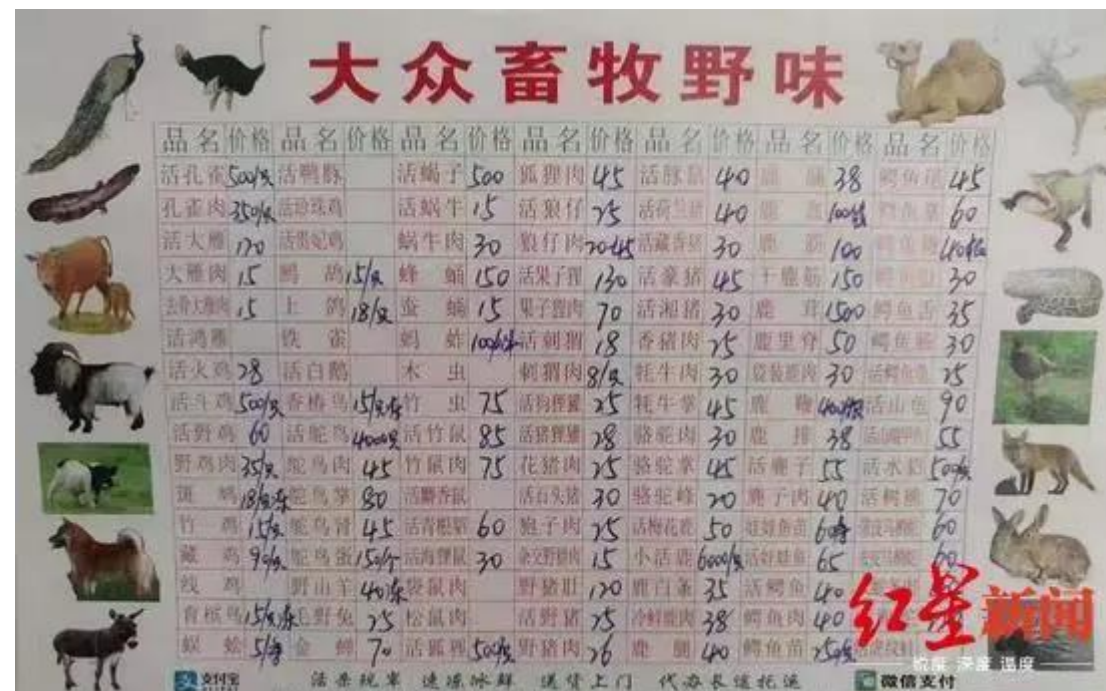 大众畜牧野味
品名 价格 品名 价格 品名 价格 品名 价格 品名 价格 品名 价格 品名 价格
活孔雀 500/只 活鸭豚 活蝎子 500 狐狸肉 45 活豚鼠 40 38 鳄鱼尾 45
孔雀肉 350/只 活珍珠鸡 活蜗牛 15 活狼仔 25 活荷兰猪 40 鹿 鳄鱼掌 60
活大雁 120 活贵妃鸡 蜗牛肉 30 狼仔肉 活藏香猪 30 鹿筋 100 鳄鱼
大雁肉 15 鹧鸪 15/只 蜂蛹 150 活果子狸 130 活豪猪 45 干鹿筋 150 鳄鱼 30
去骨大雁肉 15 土鸽 18/只 蚕蛹 15 果子狸肉 70 活湘猪 30 鹿茸 1500 鳄鱼舌 35
活鸿雁 铁雀 蚂蚱 活刺猬 18 香猪肉 25 鹿里脊 50 鳄鱼 30
活火鸡 28 活白鹅 木虫 刺猬肉 8/只 牦牛肉 30 袋装鹿肉 30 活鳄鱼龟 25
活斗鸡 500/只 香椿鸟 15/只冻 竹虫 75 活狗狸獾 25 牦牛掌 45 鹿鞭 活山龟 90
活野鸡 60 活鸵鸟 4000/只 活竹鼠 85 活猪狸獾 28 骆驼肉 30 鹿排 38 55
野鸡肉 35/只 鸵鸟肉 45 竹鼠肉 75 花猪肉 25 骆驼掌 45 活麂子 55 活水貂 500/只
斑鸠 18/只冻 鸵鸟掌 80 活麝香鼠 活石头猪 30 骆驼峰 20 麂子肉 40 活树熊 70
竹鸡 15/只 鸵鸟肾 45 活青根貂 60 狍子肉 25 活梅花鹿 50 娃娃鱼苗 60
藏鸡 90/只 鸵鸟蛋 150/个 活海狸鼠 30 杂交野猪肉 15 小活鹿 6000/只 活娃娃鱼 65
线鸡 野山羊 40冻 袋鼠肉 野猪肚 120 鹿白条 35 活鳄鱼 40
育槟鸟 15/只冻 毛野兔 25 松鼠肉 活野猪 25 冷鲜鹿肉 38 鳄鱼肉 40
蜈蚣 5/ 金蝉 70 活狐狸 500/只 野猪肉 26 鹿腿 40 鳄鱼苗 250/
支付宝 活杀现宰 速冻冰鲜 送货上门 代办长途托运 微信支付
红星新闻
锐度 深度 温度